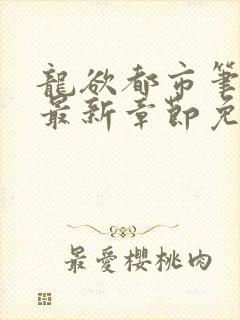 龍欲都市筆
最新章節免
最愛櫻桃肉